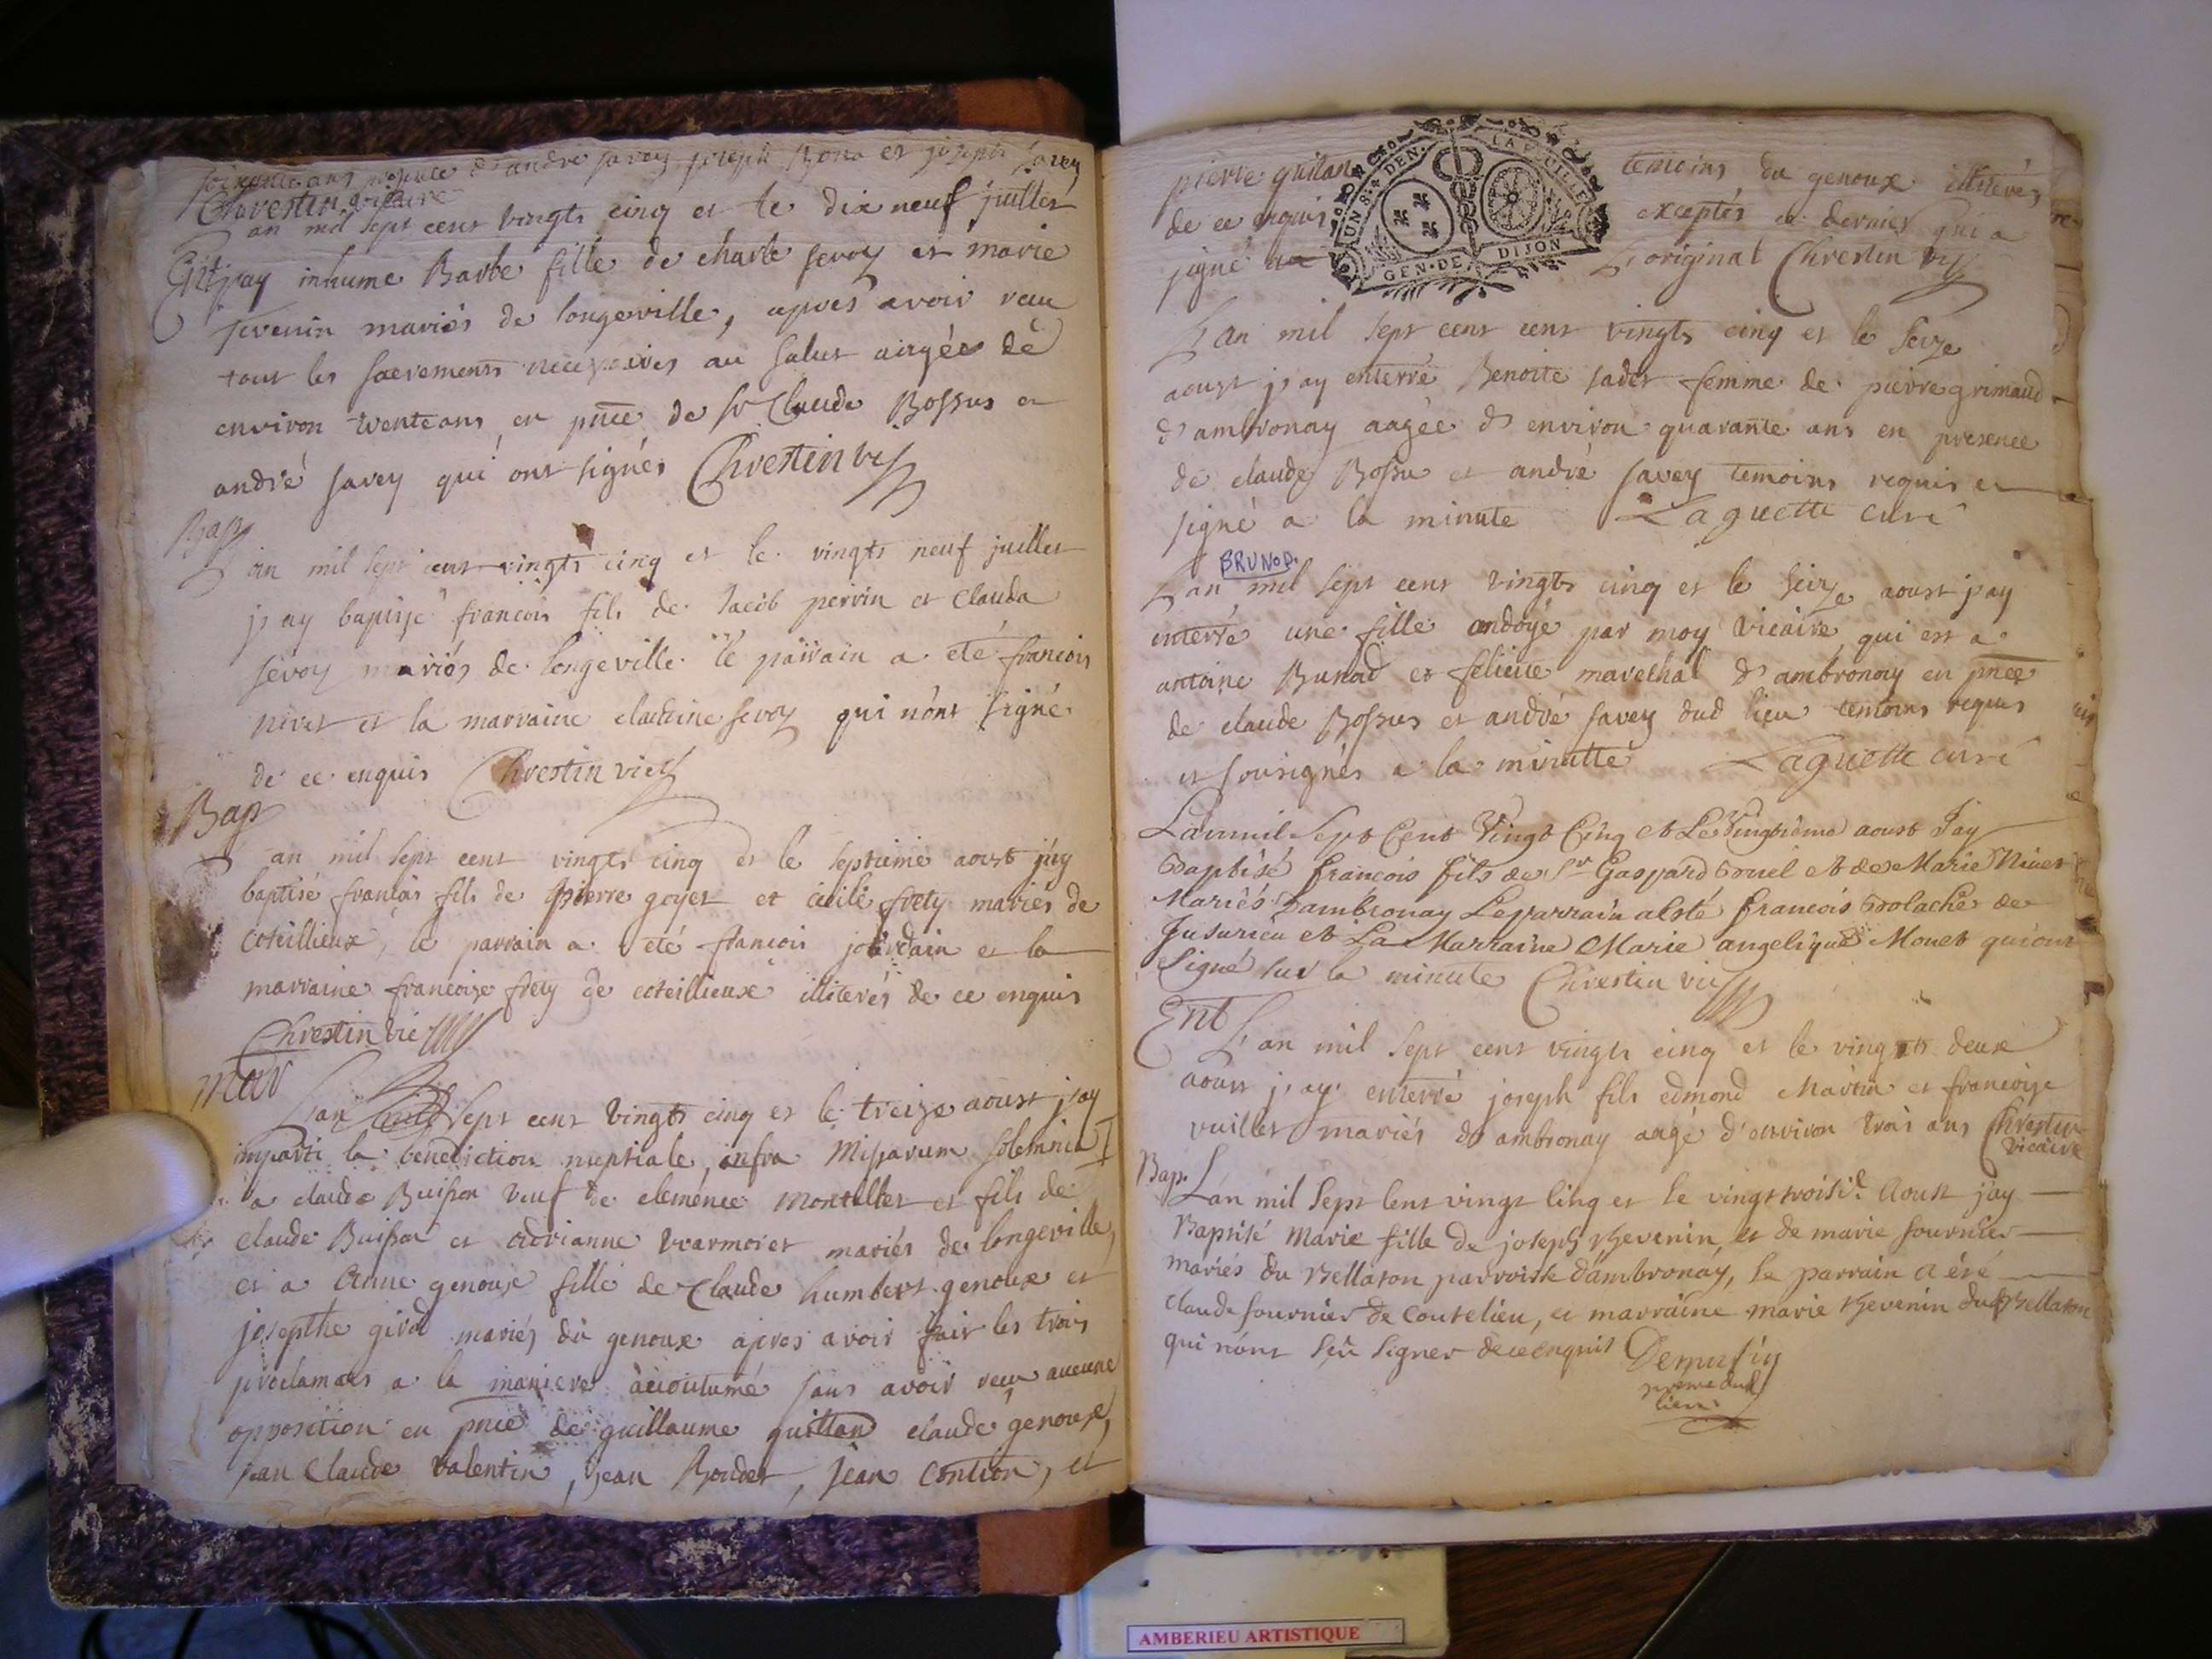 soixante ans presence d'andré savey joseph Bona et joseph savey
Chrestin vicaire
an mil sept cent vingts cinq et le dix neuf juillet
Ent j'ay inhume Barbe fille de charle servoy et marie
sevenin mariés de longeville, apres avoir reçu
tout les sacrements necessaires au salut aagée de
environ trente ans, en pnce de sr Claude Bossus et
andré savey qui ont signés Chrestin vic
Bap
L'an mil sept cent vingts cinq et le vingts neuf juillet
j'ay baptisé francois fils de Jacob perrin et Clauda
sevoy mariés de longeville le parrain a eté francois
nivet et la marraine claudine sevoy qui n'ont signé
de ce enquis Chrestin vic
Bap
L'an mil sept cent vingts cinq et le septieme aoust j'ay
baptisé francois fils de pierre goyet et cicile frety mariés de
coteillieux, le parrain a eté francois jourdain et la
marraine francoise frety de coteillieux illiterés de ce enquis
Chrestin vic
Mar
L'an sept cent vingts cinq et le treize aoust j'ay
imparti la benediction nuptiale, infra Missarum solemnia
a claude Buisson veuf de clemence montillet et fils de
claude Buisson et adrianne mariés de longeville,
et a Anne genoux fille de Claude humbert genoux et
josepthe girod mariés du genoux apres avoir fait les trois
proclamaos a la maniere accoutumé sans avoir reçu aucune
opposition en pnce de guillaume quittan claude genoux,
jean Claude valentin, jean Boudet, jean contion, et
pierre quitan temoins du genoux illiterés
de ce enquis exceptés ce dernier qui a
signé L'original Chrestin vic
UN S. 4 DEN. LA FEUILLE
GEN. DE DIJON
L'an mil sept cent cent vingts cinq et le seize
aoust j'ay enterré Benoite sadet femme de pierre grimaud
d'ambronay aagée d'environ quarante ans en presence
de claude Bossu et andré savey temoins requis et
signé a la minute Laguette curé
BRUNOD.
L'an mil sept cent vingts cinq et le seize aoust j'ay
enterré une fille ondoyé par moy vicaire qui est a
antoine Bunod et feliciie marechal d'ambronay en pnce
de claude Bossus et andré savey dud lieu temoins requis
et sousignés a la minutte Laguette curé
Lanmil Sept Cent Vingt Cinq et Le Vingtième aoust Jay
Baptisé francois fils de Sr Gaspard Bruel et de Marie Nivet
Mariés Dambronay Le parrain a esté francois Bolache de
Jusurieu et La Marraine Marie angelique Monet qui ont
Signé sur la minute Chrestin vic
Ent
L'an mil sept cent vingts cinq et le vingts deux
aoust j'ay enterré joseph fils edmond Martin et francoise
vuillet mariés d'ambronay aagé d'environ trois ans Chrestin
vicaire
Bap. L'an mil sept cent vingt cinq et le vingt troisie Aoust j'ay
Baptisé Marie fille de joseph thevenin, et de marie fournier
mariés du Bellaton parroisse d'ambronay, le parrain a été
claude fournier de Coutelieu, et marraine marie thevenin dud Bellaton
qui n'ont sçû signer de ce enquis
dud
lieu
AMBERIEU ARTISTIQUE